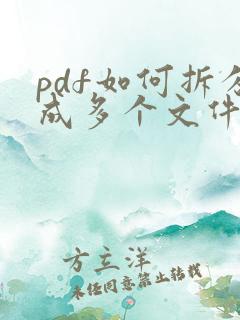 pdf如何拆分
成多个文件
方立洋
未经同意禁止转载